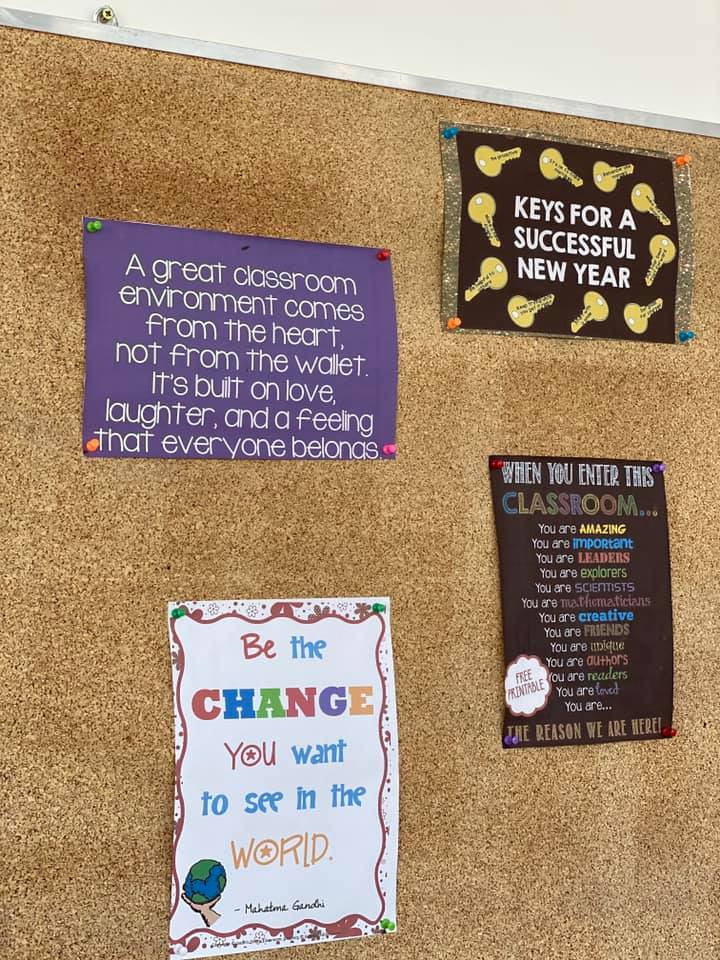 A great classroom
environment comes
from the heart,
not from the wallet.
It's built on love,
laughter, and a feeling
that everyone belongs.
KEYS FOR A
SUCCESSFUL
NEW YEAR
WHEN YOU ENTER THIS
CLASSROOM...
You are AMAZING
You are important
You are LEADERS
You are explorers
You are SCIENTISTS
You are mathematicians
You are creative
You are FRIENDS
You are unique
You are authors
You are readers
You are loved
You are...
THE REASON WE ARE HERE!
FREE
PRINTABLE
Be the
CHANGE
YOU want
to see in the
WORLD.
- Mahatma Gandhi